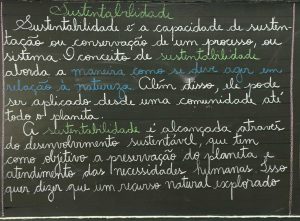 Sustentabilidade
Sustentabilidade é a capacidade de susten-
tação ou conservação de um processo, ou
sistema. O conceito de sustentabilidade
aborda a maneira como se deve agir em
relação à natureza. Além disso, ele pode
ser aplicado desde uma comunidade até
todo o planeta.
A sustentabilidade é alcançada através
do desenvolvimento sustentável, que tem
como objetivo a preservação do planeta e
atendimento das necessidades humanas. Isso
quer dizer que um recurso natural explorado